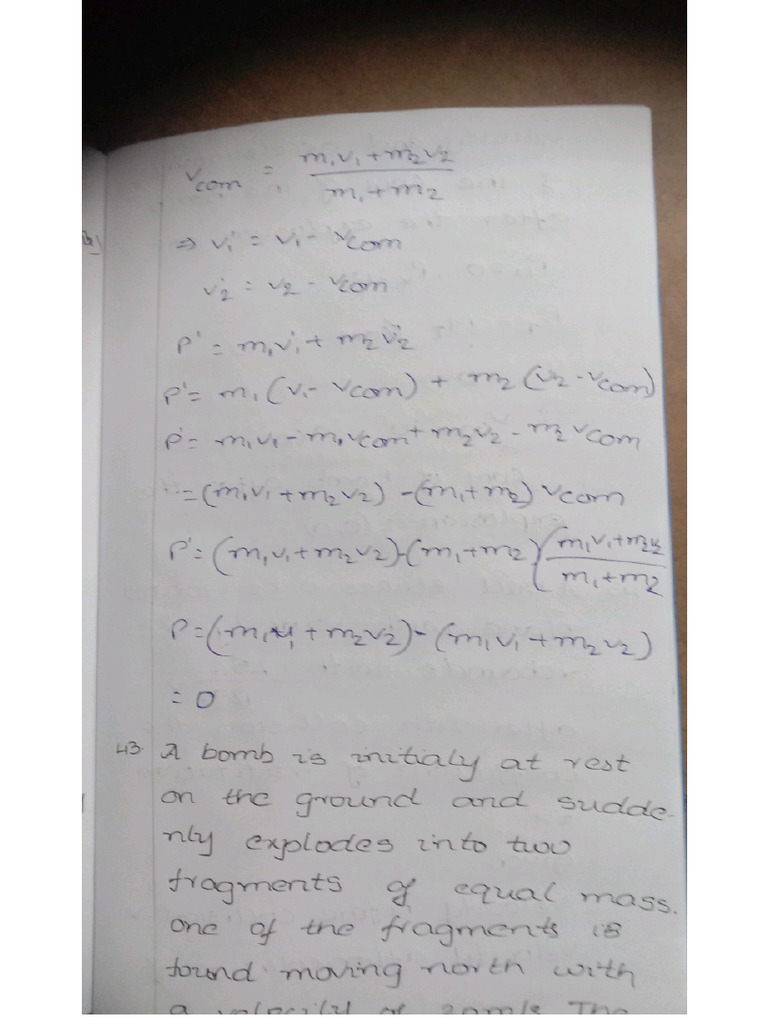 Vcom = m₁v₁ + m₂v₂ / m₁ + m₂
⇒ v₁' = v₁ - vcom
v₂' = v₂ - vcom
P' = m₁v₁' + m₂v₂'
P' = m₁(v₁ - vcom) + m₂(v₂ - vcom)
P' = m₁v₁ - m₁vcom + m₂v₂ - m₂vcom
= (m₁v₁ + m₂v₂) - (m₁ + m₂)vcom
P' = (m₁v₁ + m₂v₂) - (m₁ + m₂)(m₁v₁ + m₂v₂ / m₁ + m₂
P = (m₁v₁ + m₂v₂) - (m₁v₁ + m₂v₂)
= 0
43. A bomb is initialy at rest
on the ground and sudde-
nly explodes into two
fragments of equal mass.
one of the fragments is
found moving north with
a velocity of The